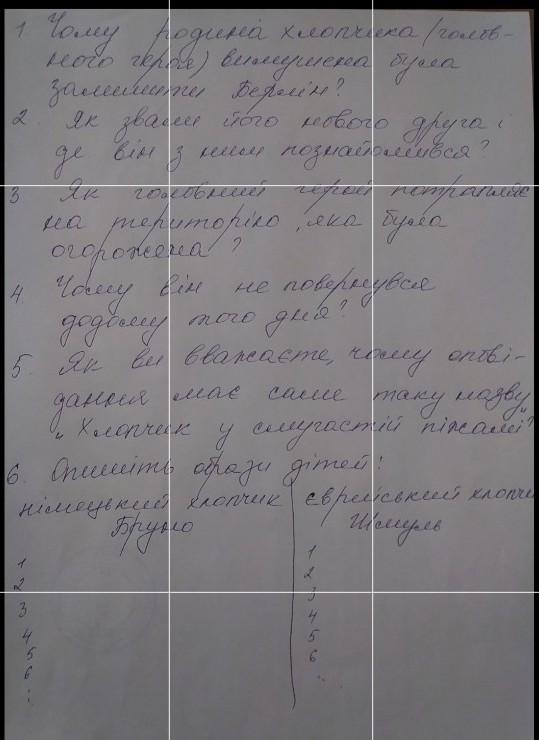 1 Чому родина хлопчика (голов-
ного героя) вимушена була
залишити Берлін?
2. Як звали його нового друга і
де він з ним познайомився?
3 Як головний герой потрапляє
на територію, яка була
огорожена?
4. Чому він не повернувся
додому того дня?
5. Як ви вважаєте, чому опові-
дання має саме таку назву
„Хлопчик у смугастій піжамі"?
6. Опишіть образи дітей!
німецький хлопчик
Бруно
єврейський хлопчи
Шмуль
1
2
3
4
5
6
:
1
2
3
4
5
6